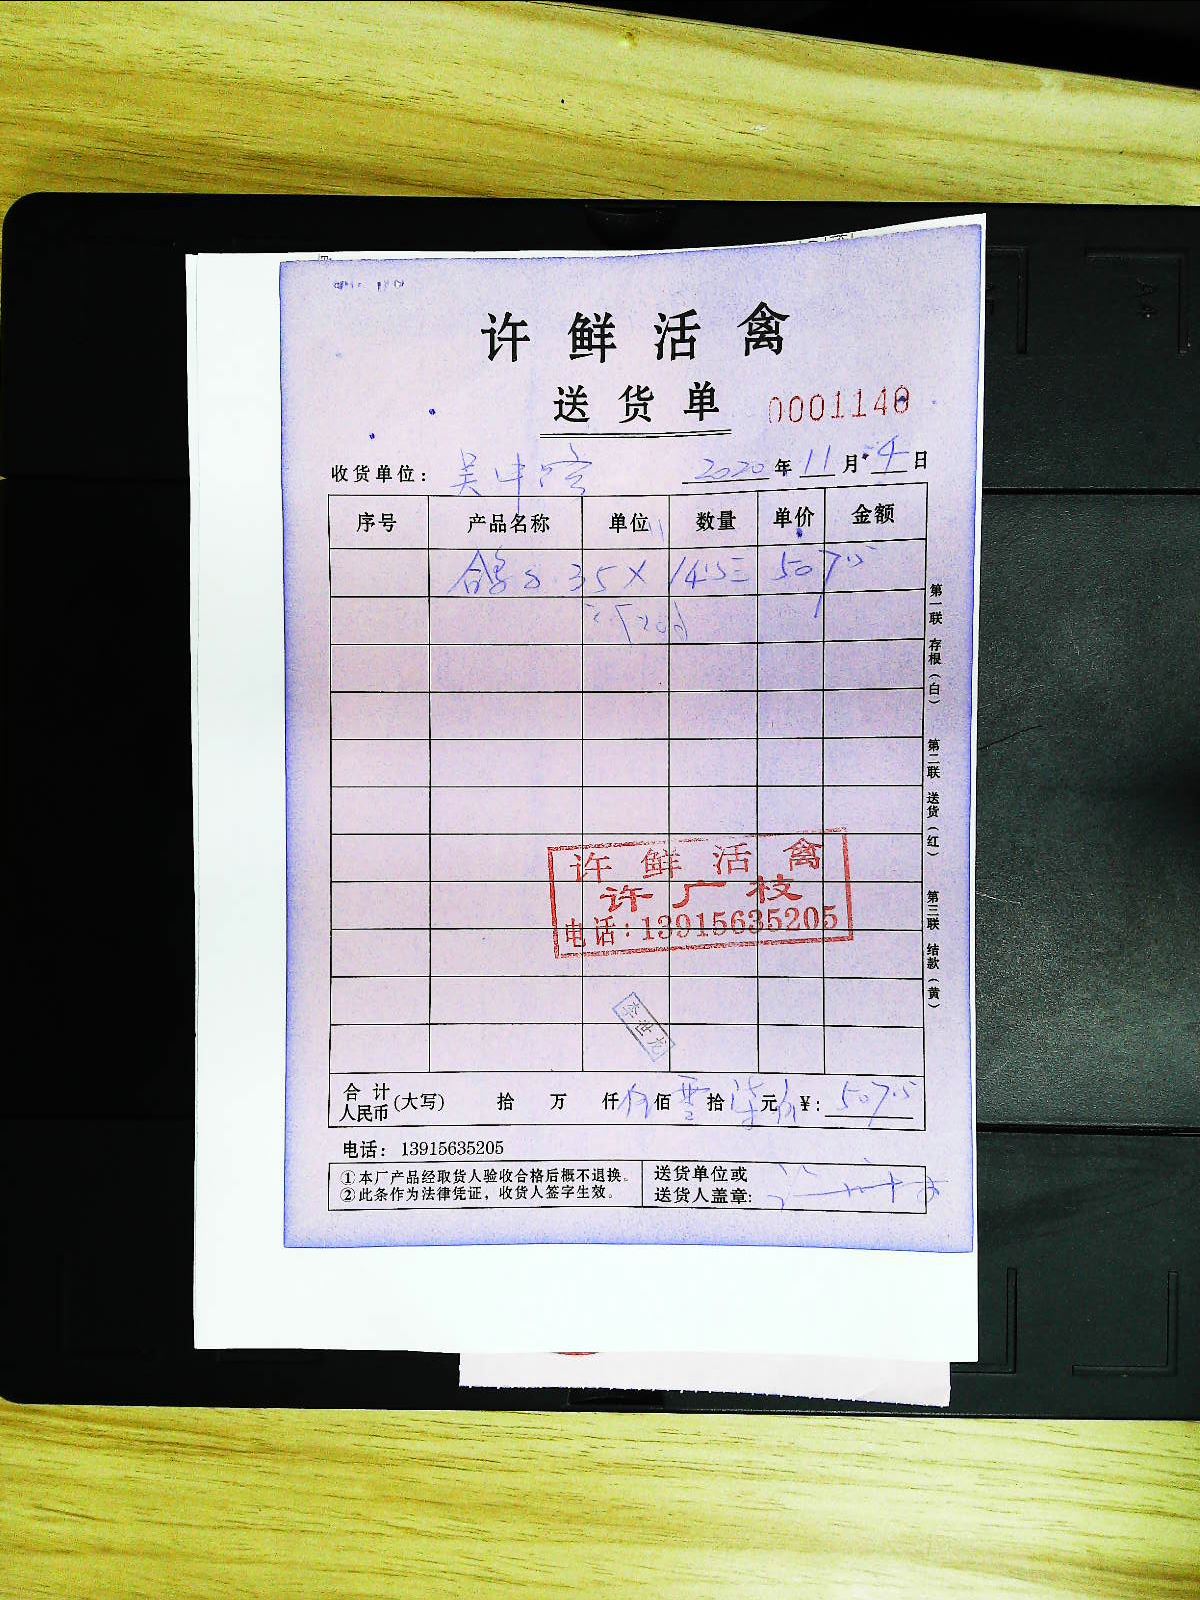 许鲜活禽
送货单 0001140
收货单位: 吴中 2020年11月4日
序号 产品名称 单位 数量 单价 金额
鸽 35 X 14.5= 507.5
第一联 存根(白) 第二联 送货(红) 第三联 结款(黄)
许鲜活禽
许广枝
电话:13915635205
李世龙
合计人民币(大写) 拾 万 仟 伍佰零拾柒元 ¥: 507.5
电话: 13915635205
①本厂产品经取货人验收合格后概不退换。
②此条作为法律凭证,收货人签字生效。
送货单位或
送货人盖章: